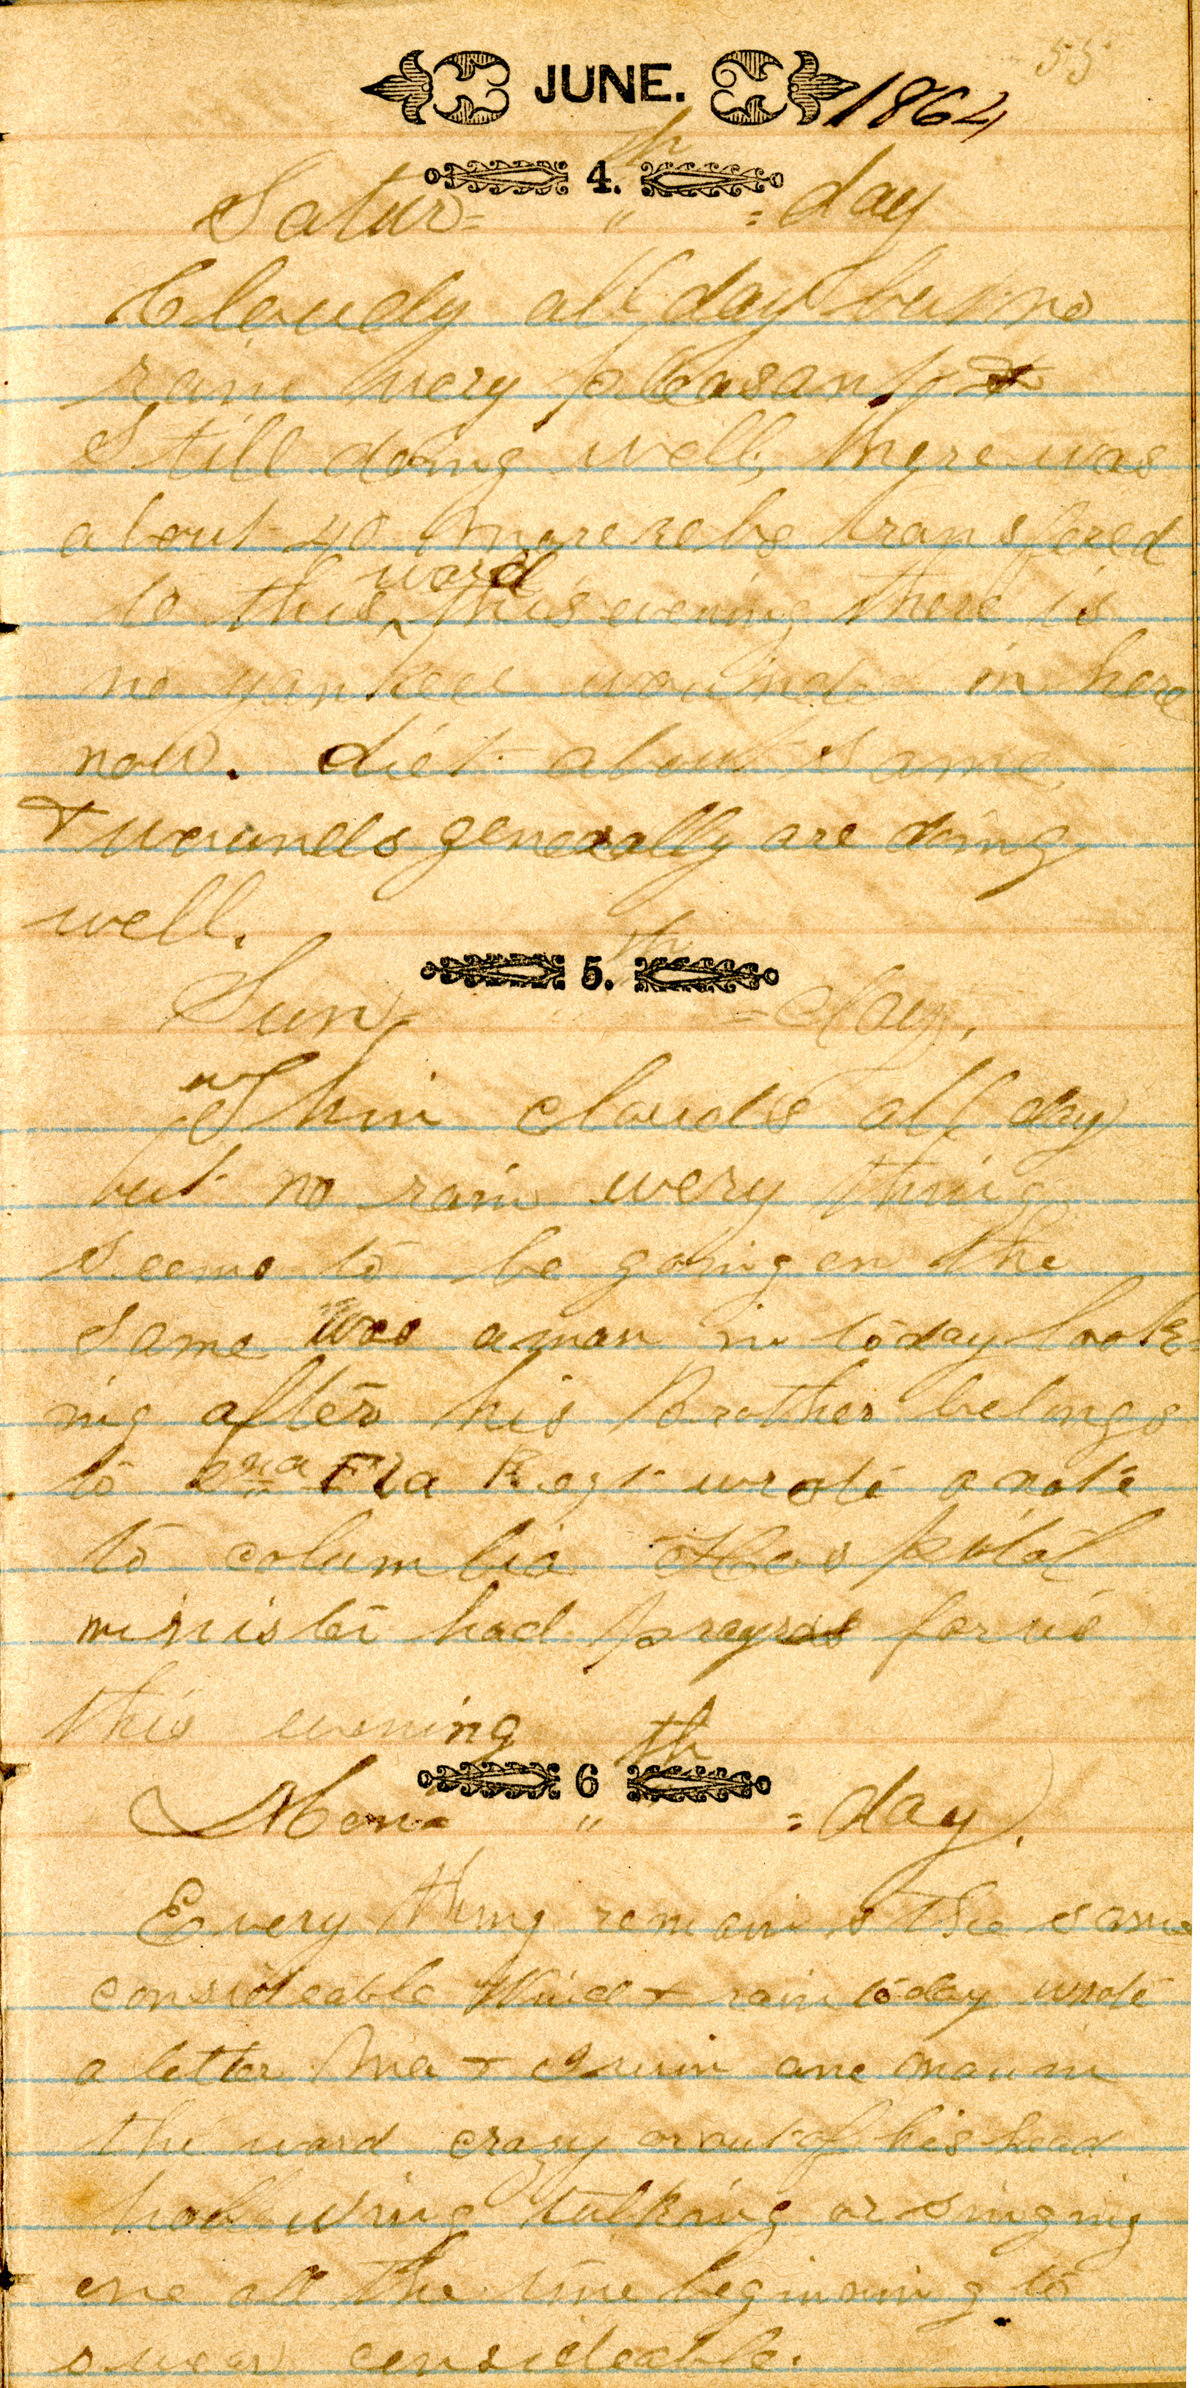 55
JUNE. 1864
4.th
Satur= " =day
Cloudy all day but no
rain very pleasant &
Still doing well, there was
about 40 more to be transfered
to this ward this evening there is
no yankees wounded in here
now. diet about same
& wounds generally are doing
well.
5.th
Sun= =day.
Thin clouds all day
but no rain every thing
seems to be going on the
same was a man in today look
ing after his Brother belongs
to 2nd Fla Regt wrote a note
to columbia Hospital
minister had prayrs for us
this evening
6th
Mon= " =day.
Every thing remains the same
consideable Wind & rain today wrote
a letter Ma & one man in
the ward crazy or out of his head
hollowing talking or singing
one all the time beginning to
swear consideable.